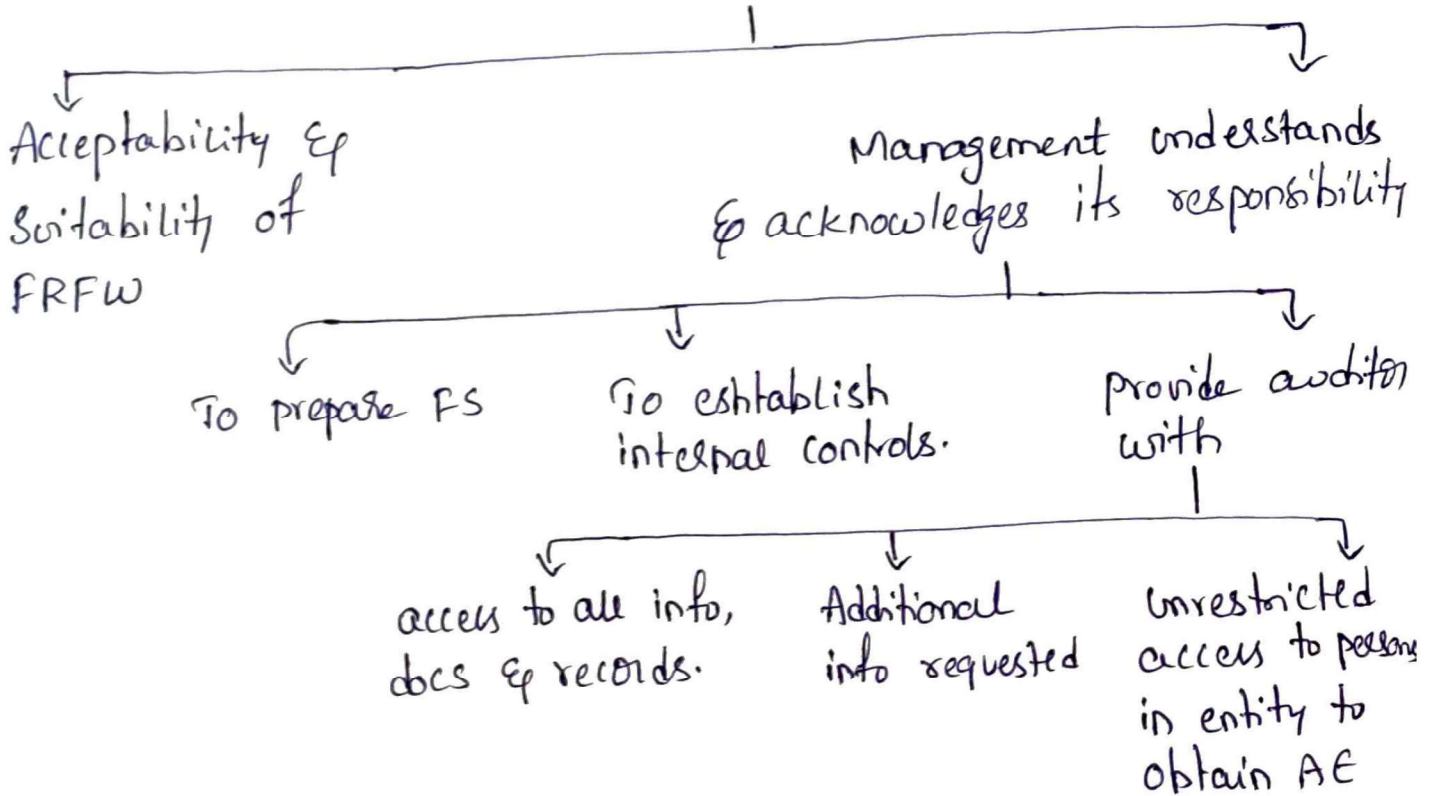 Acceptability &
Suitability of
FRFW
Management understands
& acknowledges its responsibility
To prepare FS
To eshtablish
internal controls.
provide auditor
with
access to all info,
docs & records.
Additional
info requested
Unrestricted
access to persons
in entity to
obtain AE